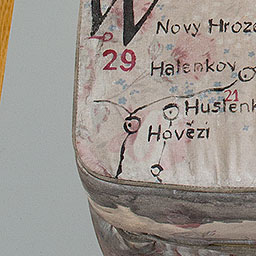 W
Novy Hroze
29
Halenkov
21
Huslenk
Hovězí